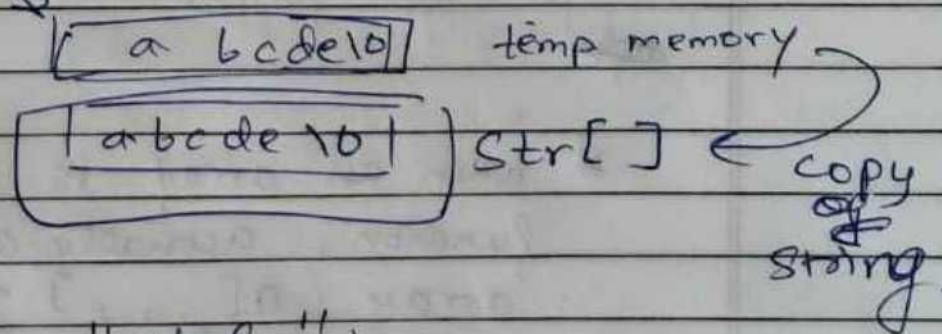 a bcde\0 temp memory
abcde \0 Str[ ]
copy
of
string